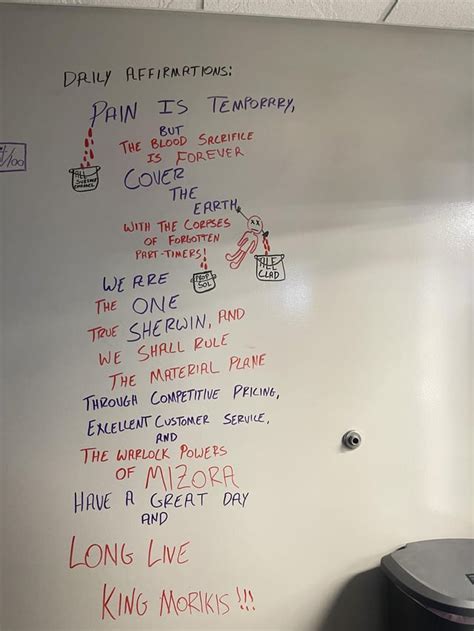 DAILY AFFIRMATIONS:
PAIN IS TEMPORARY,
BUT
THE BLOOD SACRIFICE
IS FOREVER
/100
ALL
SURFACE
ENAMEL
COVER
THE
EARTH
WITH THE CORPSES
OF FORGOTTEN
PART-TIMERS!
ALL
CLAD
PROP
SOL
WE ARE
THE ONE
TRUE SHERWIN, AND
WE SHALL RULE
THE MATERIAL PLANE
THROUGH COMPETITIVE PRICING,
EXCELLENT CUSTOMER SERVICE,
AND
THE WARLOCK POWERS
OF MIZORA
HAVE A GREAT DAY
AND
LONG LIVE
KING MORIKIS!!!